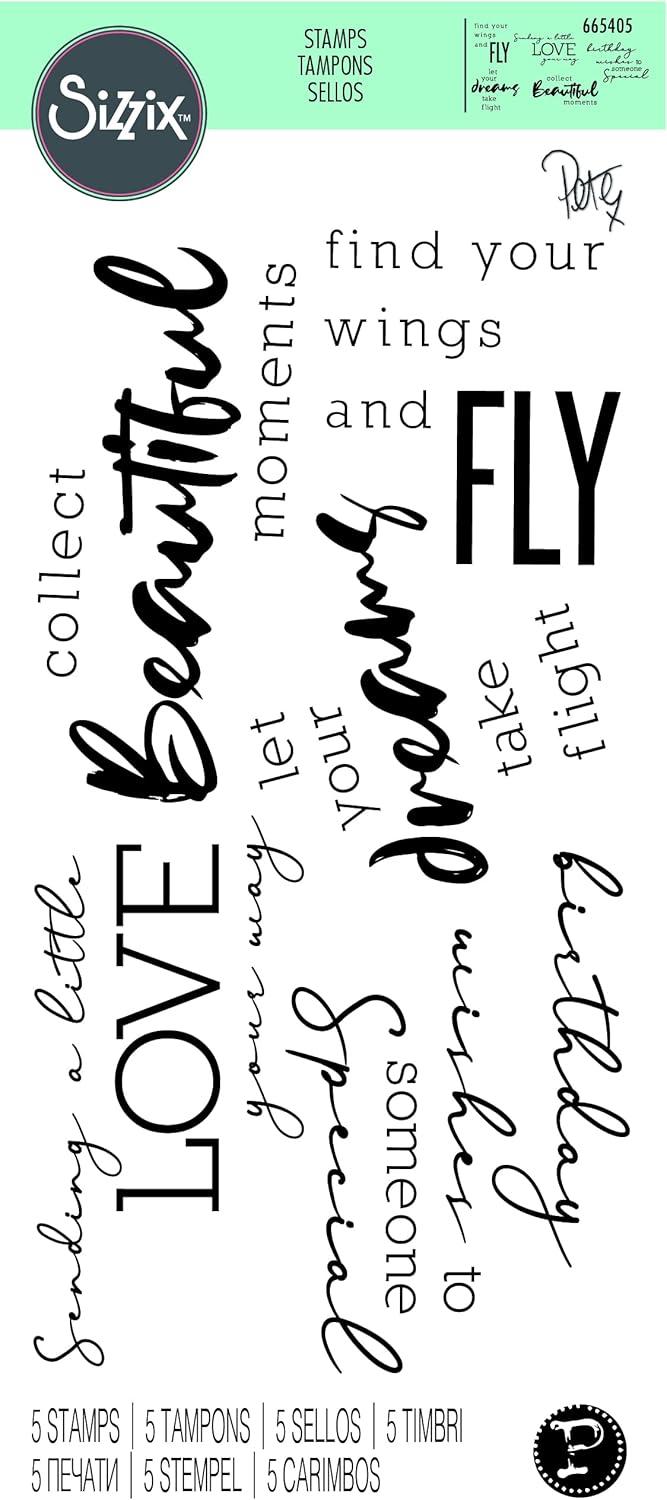 Sizzix™
STAMPS
TAMPONS
SELLOS
find your
wings
and FLY
Sending a little
LOVE
your way
birthday
wishes to
someone
Special
let
your
dreams
take
flight
collect
Beautiful
moments
665405
Pete x
find your
wings
and FLY
collect
Beautiful
moments
let
your
dreams
take
flight
Sending a little
LOVE
your way
birthday
wishes to
someone
Special
5 STAMPS | 5 TAMPONS | 5 SELLOS | 5 TIMBRI
5 ПЕЧАТИ | 5 STEMPEL | 5 CARIMBOS